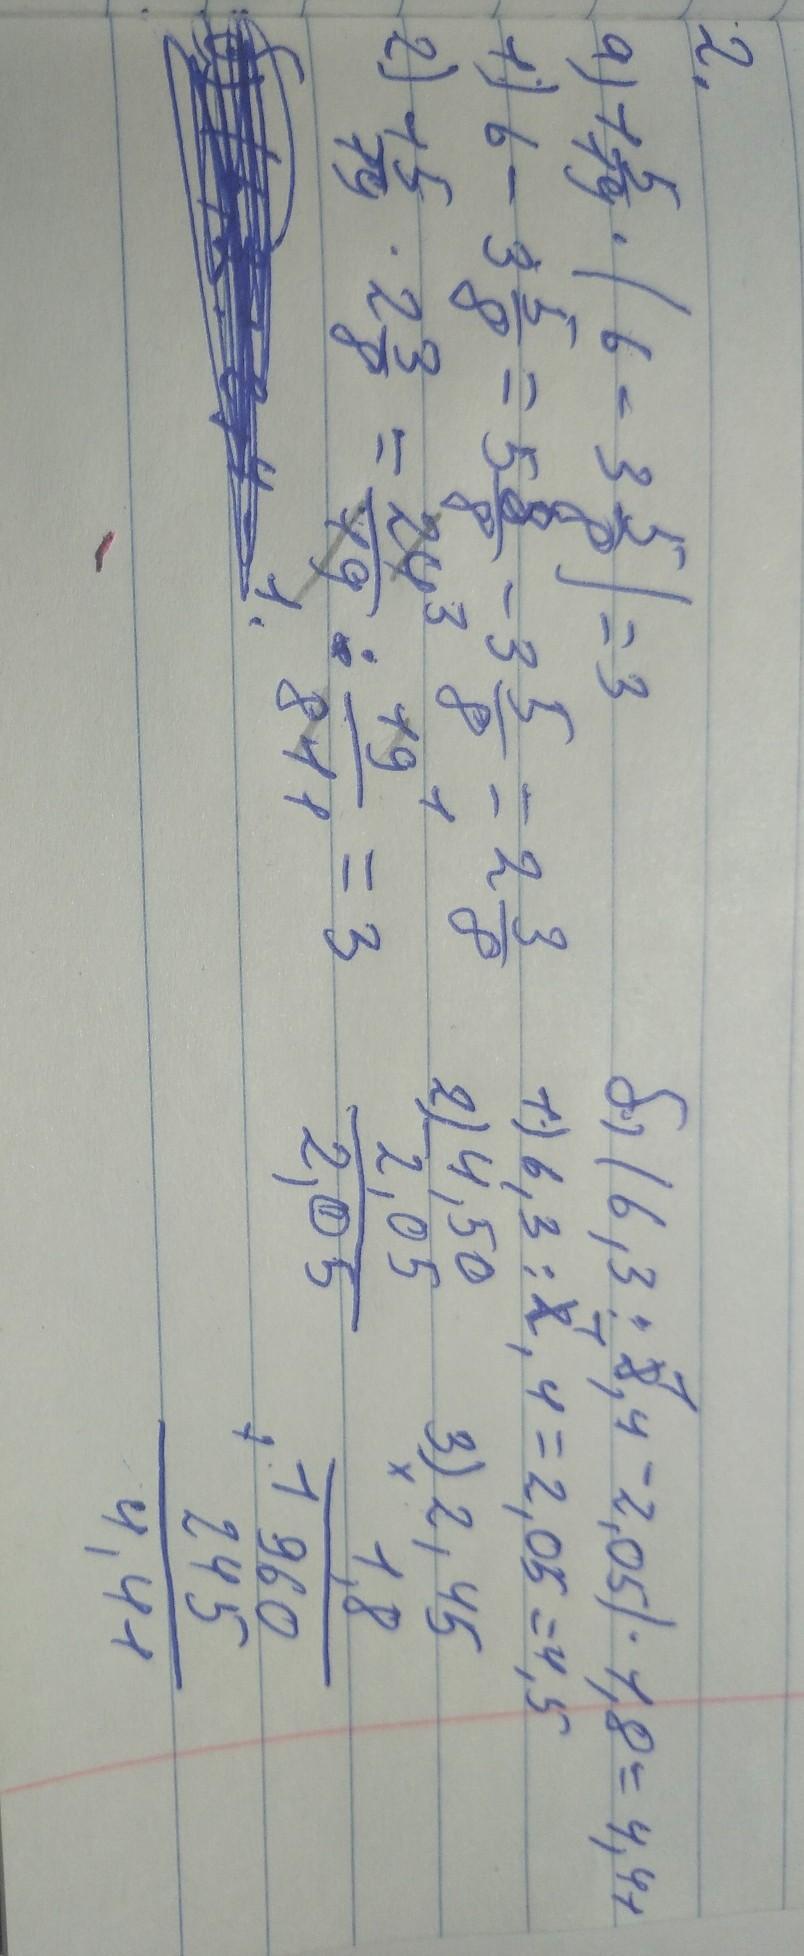 2.
а) 1 5/19 · (6 - 3 5/8) = 3
1) 6 - 3 5/8 = 5 8/8 - 3 5/8 = 2 3/8
2) 1 5/19 · 2 3/8 = 24 3/19 1 · 19 1/8 1 = 3
б) (6,3 : 1,4 - 2,05) · 1,8 = 4,41
1) 6,3 : 1,4 = 2,05 = 4,5
2) 4,50
2,05
2,05
3) 2,45
× 1,8
+ 1960
245
4,41